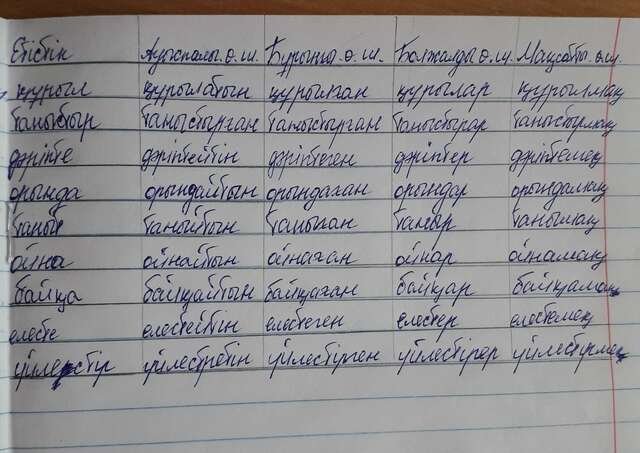 Етістік Ауыспалы ө.ш. Бұрынғы ө.ш. Болжалды ө.ш. Мақсатты ө.ш.
құрыл құрылатын құрылған құрылар құрылмақ
таныстыр таныстырған таныстырған таныстырар таныстырмақ
дәріпте дәріптейтін дәріптеген дәріптер дәріптемек
орында орындайтын орындаған орындар орындамақ
таныт танытатын танытқан танытар танытпақ
ойна ойнайтын ойнаған ойнар ойнамақ
байқа байқайтын байқаған байқар байқамақ
елесте елестейтін елестеген елестер елестемек
үйлестір үйлестіретін үйлестірген үйлестірер үйлестірмек